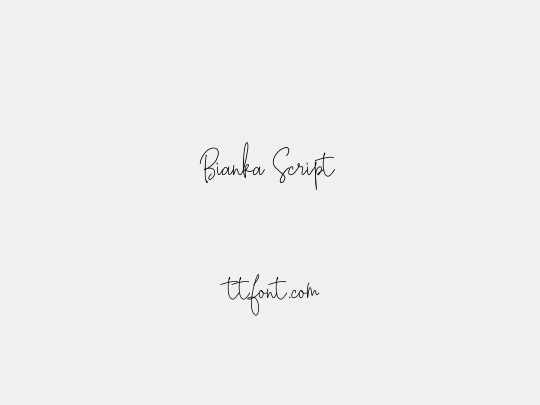 Bianka Script
ttfont.com